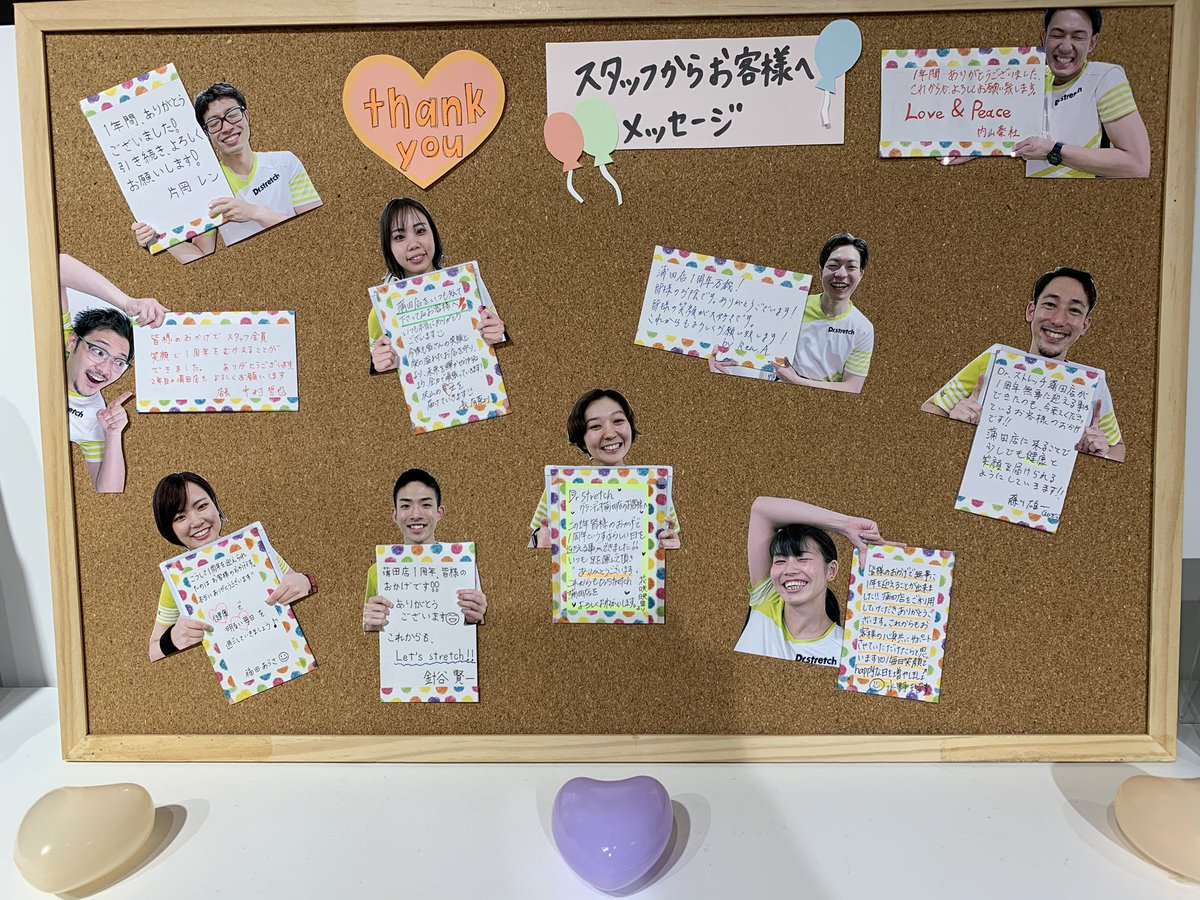 thank
you
スタッフからお客様へ
メッセージ
1年間 ありがとうございました。
これからも、よろしくお願い致します。
Love & Peace
内山
1年間 ありがとう
ございました!
引き続き、よろしく
お願いします!
片岡 レン
Dr.stretch
Dr.stretch
皆様のおかげで スタッフ全員
笑顔で1周年をむかえることが
できました。 ありがとうございます
2年目の蒲田店も よろしくお願いします
中村
蒲田店をいつも
お客様へ
いつも本当にありがとう
ございます
蒲田店1周年万歳!
皆様のお陰です。ありがとうございます!
皆様の笑顔がステキです。
これからもよろしくお願い致します!
by Ren.A
Dr.stretch
Dr.ストレッチ蒲田店が
1周年無事に迎える事が
できたのも、今来てくださっ
ているお客様のおかげ
です!!
蒲田店に来ることで
少しでも健康と
笑顔を届けられる
ようにしていきます!!
雄一
こうして1周年を迎えられ
たのは、お客様のおかげです
本当にありがとうございます
健康で
明るい毎日を
過ごしていきましょう♪
福田
蒲田店1周年、皆様の
おかげです!!
ありがとう
ございます
これからも、
Let's stretch!!
針谷 賢一
Dr.stretch
この1年皆様のおかげで
1周年というすばらしい日を
迎える事ができました
いつも足を運んで頂き
ありがとうございます。
これからもDr.stretch
蒲田店を
よろしくお願いします。
皆様のおかげで無事に
1年を迎えることが出来ま
した!! 蒲田店をご利用
していただきありがとうご
ざいます。これからもお
客様の心身共にサポート
させていただけたらと思
います 毎日笑顔で
happyな日を増やしましょ
Dr.stretch